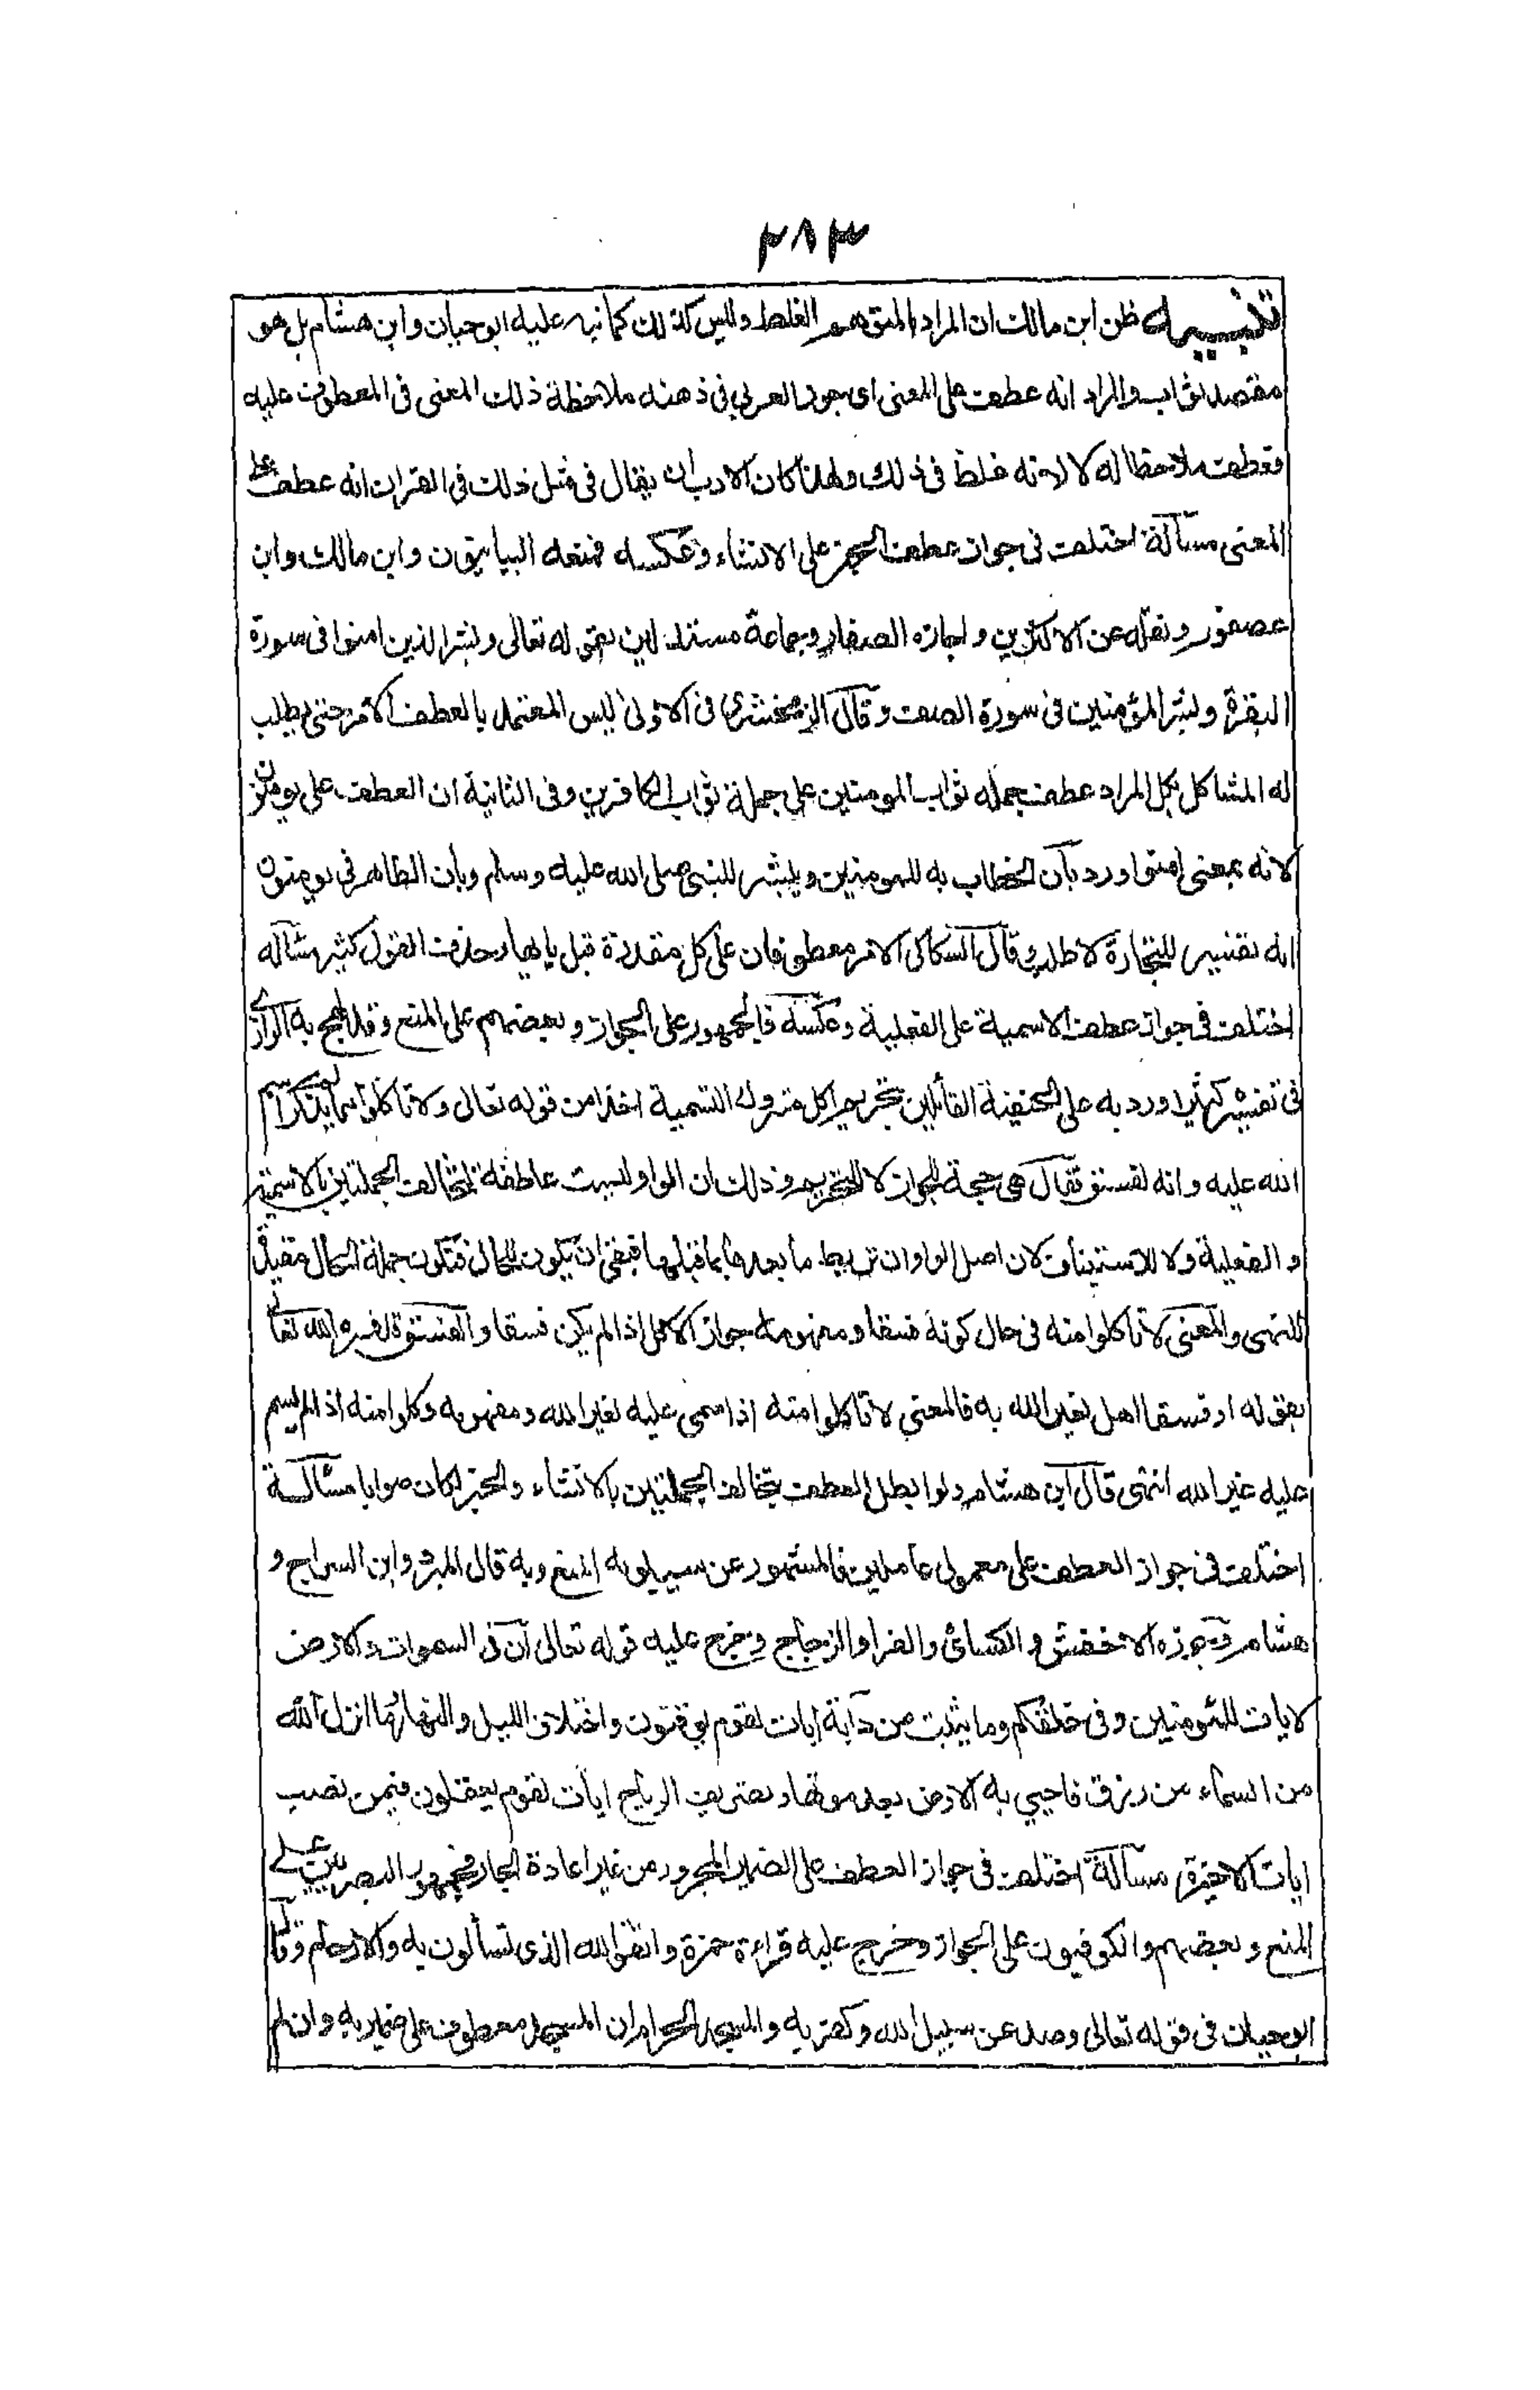 ٢٨٣
تنبيه ظن ابن مالك ان المراد بالمتوهم الغلط وليس كذلك كما نبه عليه ابو حيان وابن هشام بل هو
مقصد ثواب والمراد انه عطف على المعنى اى يجوز العربي في ذهنه ملاحظة ذلك المعنى فى المعطوف عليه
فعطف ملاحظا له لا لانه غلط فى ذلك ولهذا كان الادب ان يقال فى مثل ذلك فى القران انه عطف على
المعنى مسألة اختلف فى جواز عطف الخبر على الانشاء وعكسه فمنعه البيانيون وابن مالك وابن
عصفور ونقله عن الاكثرين واجازه الصفار وجماعة مستدلين بقوله تعالى وبشر الذين امنوا فى سورة
البقرة وبشر المؤمنين فى سورة الصف وقال الزمخشرى فى الاولى ليس المعتمد بالعطف الامر حتى يطلب
له المشاكل بل المراد عطف جملة ثواب المومنين على جملة ثواب الكافرين وفى الثانية ان العطف على يومنون
لانه بمعنى امنوا ورد بان الخطاب به للمومنين وبشر للنبى صلى الله عليه وسلم وبان الظاهر فى يومنون
انه تفسير للتجارة لا طلب وقال السكاكى الامر معطوفان على كل مقدرة قبل يايها وحذف القول كثير مسألة
اختلف فى جواز عطف الاسمية على الفعلية وعكسه فالجمهور على الجواز وبعضهم على المنع وقد لهج به الرازى
فى تفسيره كثيرا ورد به على الحنفية القائلين بتحريم اكل متروك التسمية اخذا من قوله تعالى ولا تاكلوا مما لم يذكر اسم
الله عليه وانه لفسق فقال هى حجة للجواز لا للتحريم وذلك ان الواو ليست عاطفة لتخالف الجملتين بالاسمية
و الفعلية ولا للاستيناف لان اصل الواو ان تربط ما بعدها بما قبلها فبقى ان يكون للحال فتكون جملة الحال مقيدة
للنهى والمعنى لا تاكلوا منه فى حال كونه فسقا ومفهومه جواز الاكل اذا لم يكن فسقا والفسق قد فسره الله تعالى
بقوله او فسقا اهل لغير الله به فالمعنى لا تاكلوا منه اذا سمى عليه لغير الله ومفهومه وكلوا منه اذا لم يسم
عليه غير الله انتهى قال ابن هشام ولو ابطل العطف بتخالف الجملتين بالانشاء والخبر لكان صوابا مسألة
اختلف فى جواز العطف على معمولى عاملين فالمشهور عن سيبويه المنع وبه قال المبرد وابن السراج و
هشام وجوزه الاخفش والكسائى والفرا والزجاج وخرج عليه قوله تعالى ان فى السموات والارض
لايات للمؤمنين وفى خلقكم وما يبث من دآبة ايات لقوم يوقنون واختلاف الليل والنهار وما انزل الله
من السماء من رزق فاحيى به الارض بعد موتها وتصريف الرياح ايات لقوم يعقلون فيمن نصب
ايات الاخيرة مسألة اختلف فى جواز العطف على الضمير المجرور من غير اعادة الجار فجمهور البصريين على
المنع وبعضهم والكوفيون على الجواز وخرج عليه قراءة حمزة واتقوا الله الذى تسألون به والارحام وقال
ابو حيان فى قوله تعالى وصد عن سبيل الله وكفر به والمسجد الحرام ان المسجد معطوف على ضمير به وان لم